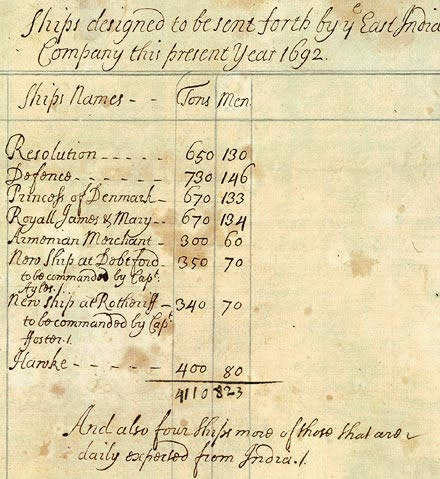 Ships designed to be sent forth by yᵉ East India
Company this present Year 1692.
Ships Names - - Tons Men
Resolution - - - - - 650 130
Defence - - - - - 730 146
Princess of Denmark - 670 133
Royall James & Mary - - 670 134
Armenian Merchant - 300 60
New Ship at Debtford - 350 70
to be commanded by Capᵗ:
Ayles. /.
New Ship at Rotheriff - 340 70
to be commanded by Capᵗ
Foster. /.
Hawke - - - - - 400 80
4110 823
And also four Ships more of those that are
daily expected from India. /.